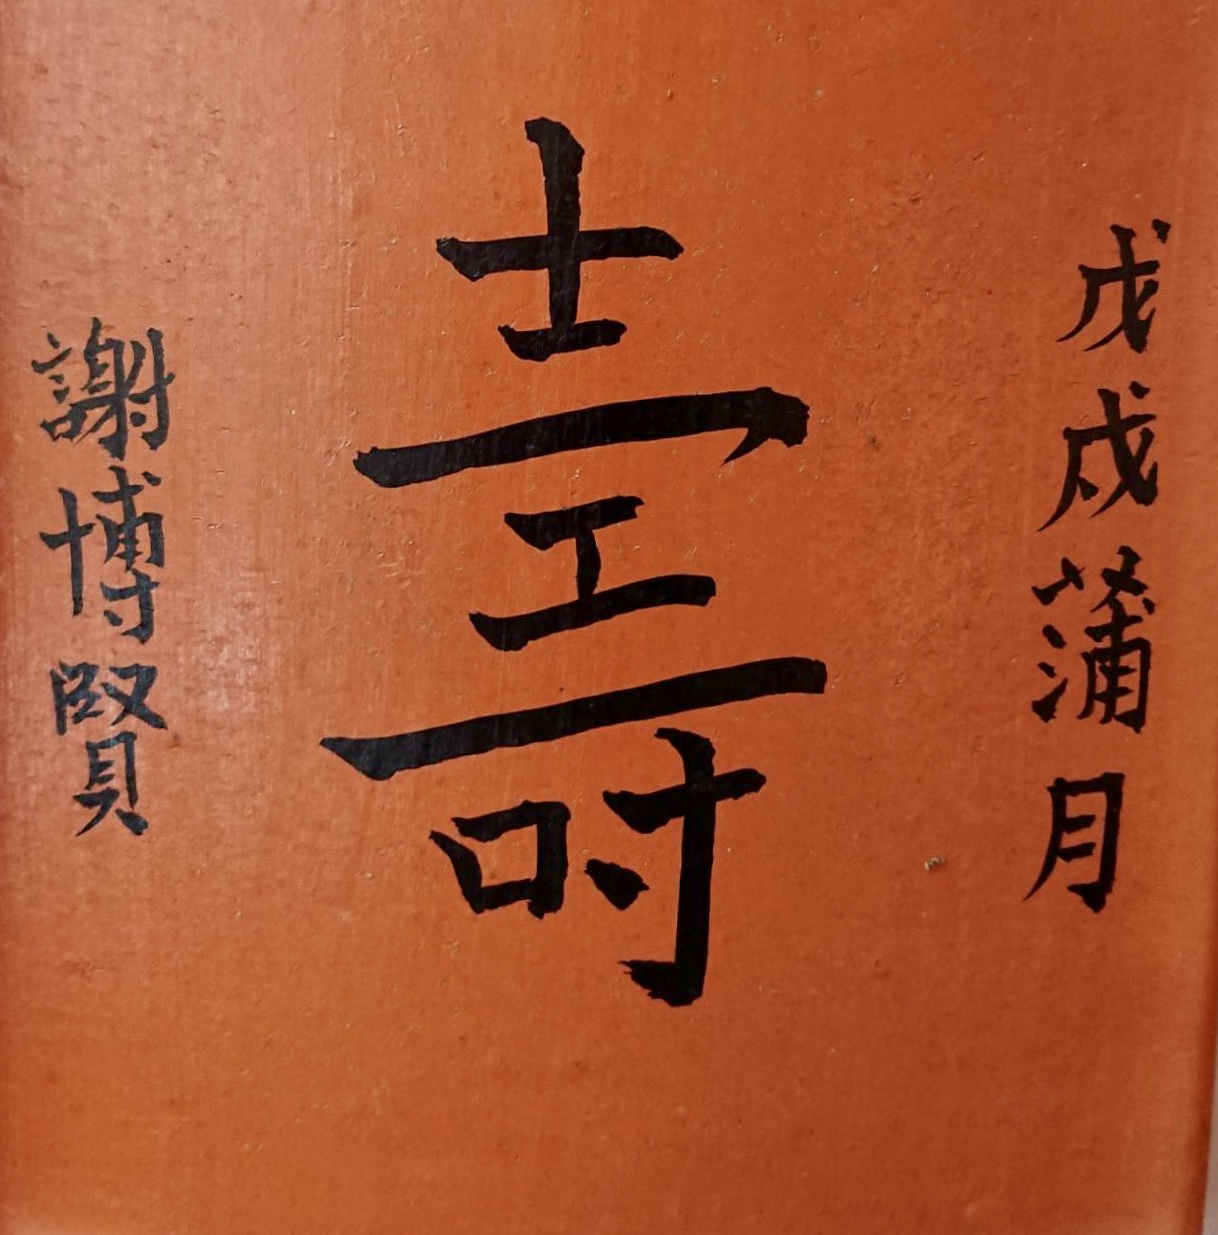 戊戌蒲月
壽
謝博賢